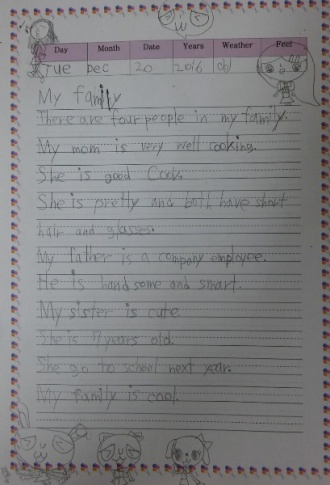 Day Month Date Years Weather Feel
Tue Dec 20 2016
My family
There are four people in my family.
My mom is very well cooking.
She is good Cook.
She is pretty and both have short
hair and glasses.
My father is a company employee.
He is handsome and smart.
My sister is cute
She is 7 years old.
She go to school next year.
My family is cool.